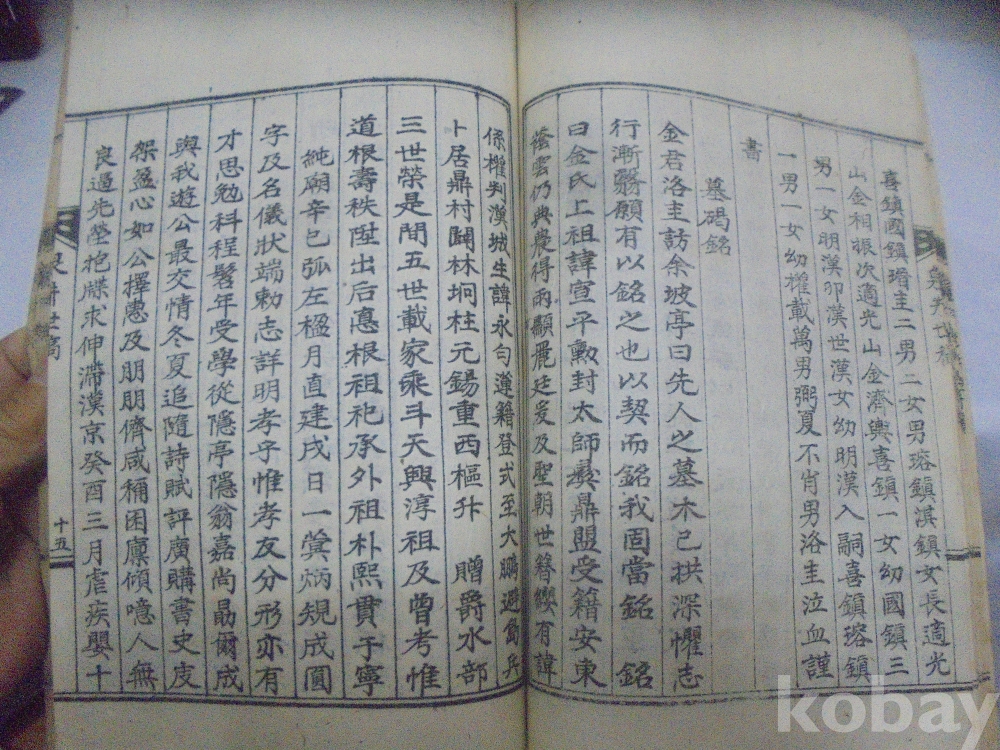 喜鎮國鎮瑨圭二男二女男瑢鎮淇鎮女長適光
山金相振次適光山金濟輿喜鎮一女幼國鎮三
男一女明漢卯漢世漢女幼明漢入嗣喜鎮瑢鎮
一男一女幼權載萬男弼夏不肖男洛圭泣血謹
書
墓碣銘
金君洛圭訪余坡亭曰先人之墓木已拱深懼志
行漸翳願有以銘之也以契而銘我固當銘 銘
曰金氏上祖諱宣平勳封太師 鼎盟受籍安東
雲仍典農得雨顯麗廷爰及聖朝世簪纓有諱
係權判漢城生諱永勻蓮籍登式至大鵬避島兵
卜居鼎村闢林坰柱元錫重西樞升 贈爵水部
三世榮是間五世載家乘斗天興淳祖及曾考惟
道根壽秩陞出后悳根祖祀承外祖朴熙貫于寧
純廟辛巳弧左楹月直建戌日一蓂炳規成圓
字及名儀狀端勅志詳明孝乎惟孝友分形亦有
才思勉科程髫年受學從隱亭隱翁嘉尚勗爾成
與我遊公最交情冬夏追隨詩賦評廣購書史庋
架盈心如公擇惠及朋儕咸稱困廩傾噫人無
良逼先塋抱牒求伸滯漢京癸酉三月虐疾嬰十
世稿
十五
kobay